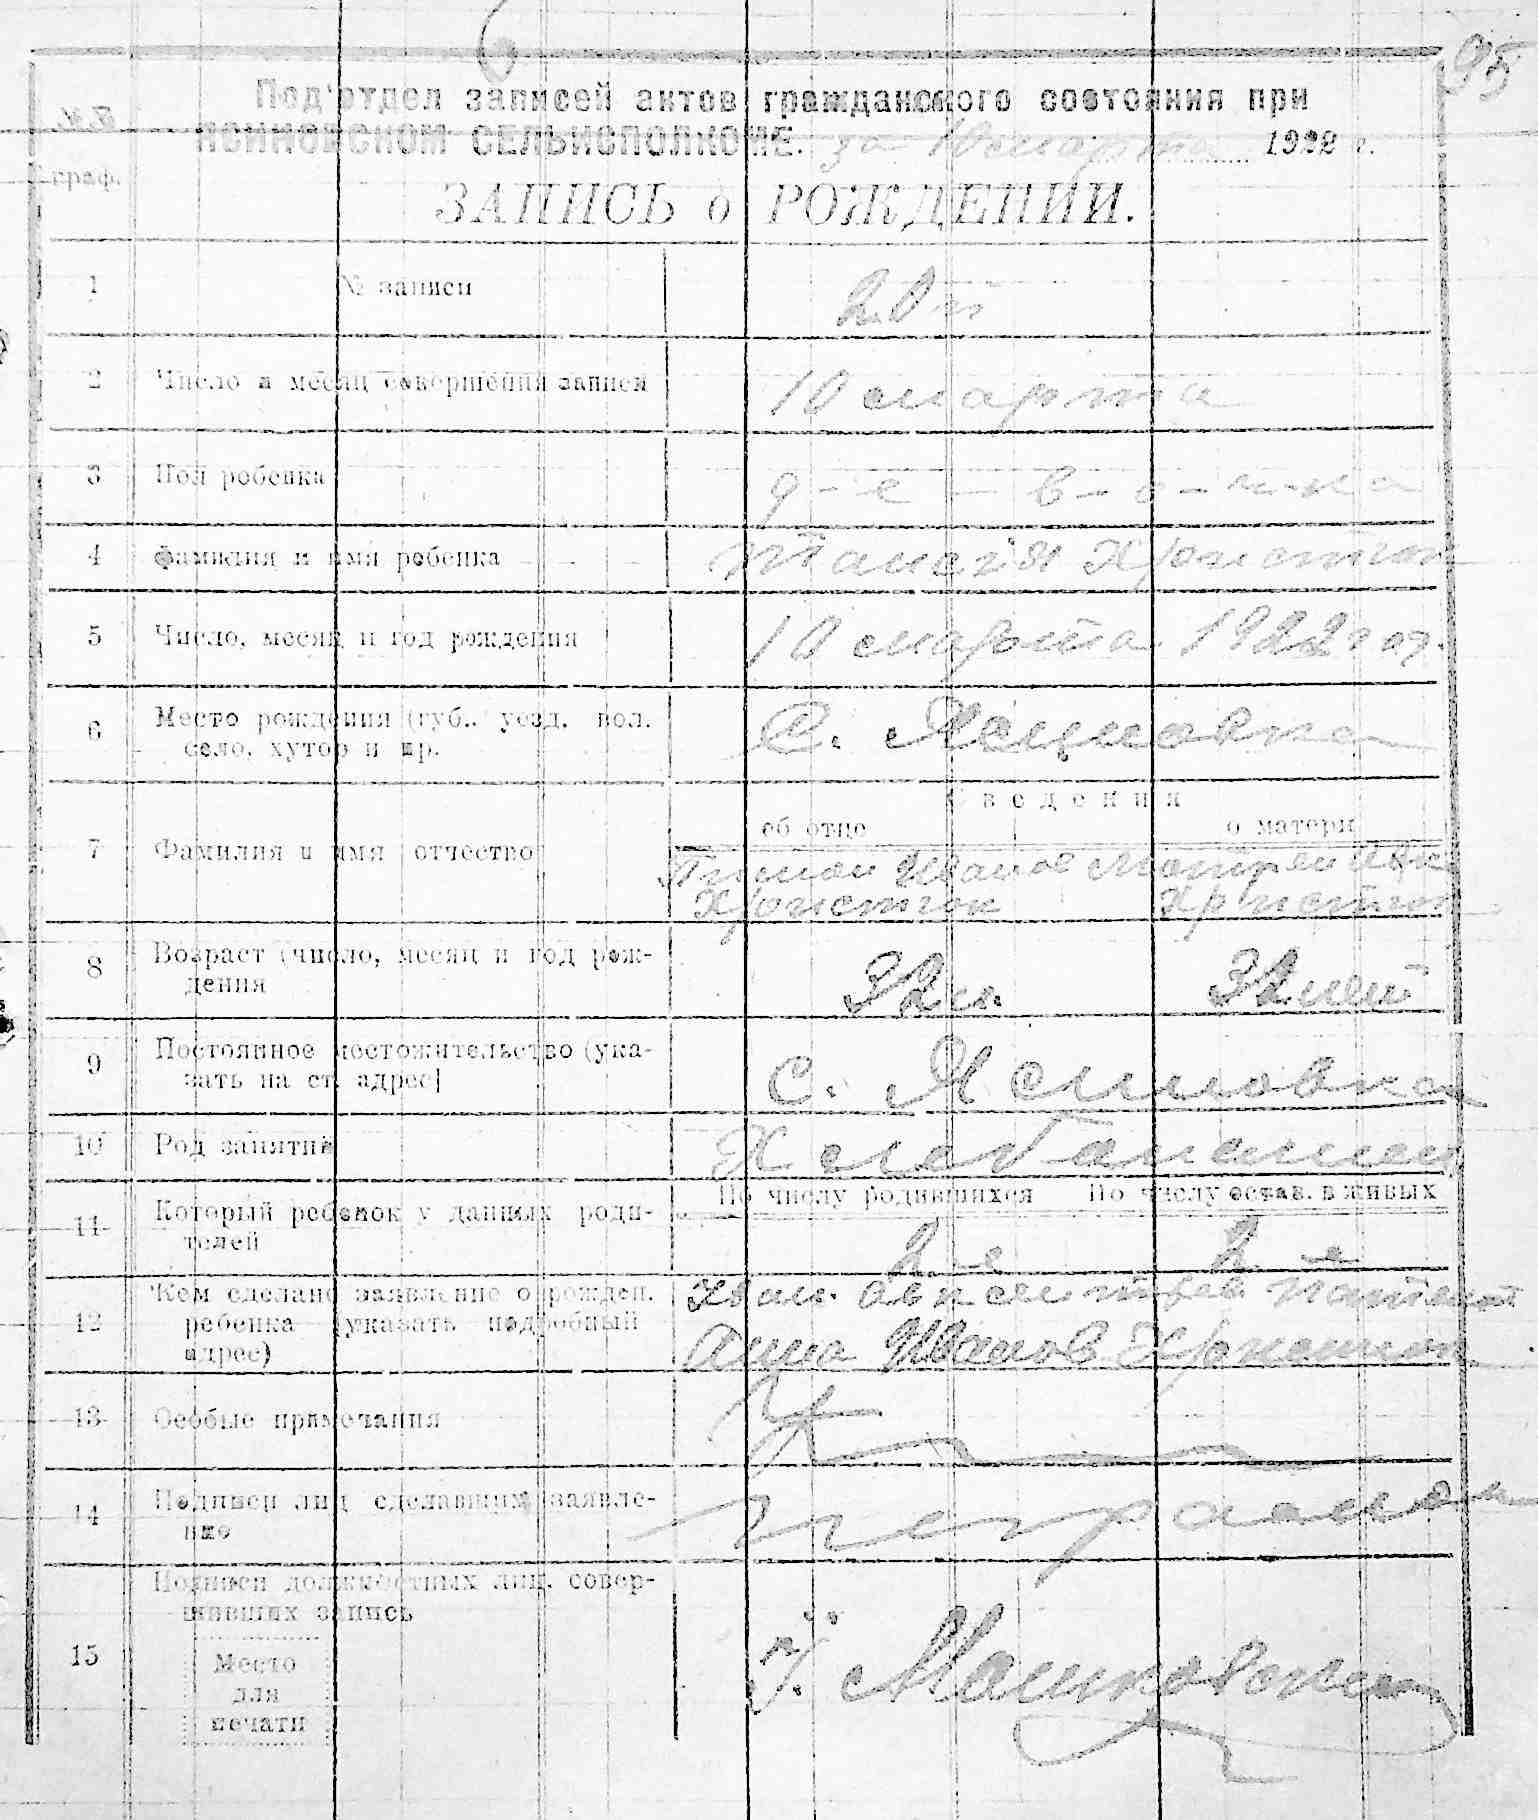 95
№№
граф.
Под'отдел записей актов гражданского состояния при
ЯСИНОВСКОМ СЕЛЬИСПОЛКОМЕ. за 10 марта 1922 г.
ЗАПИСЬ о РОЖДЕНИИ.
1 № записи 20
2 Число и месяц совершения записи 10 марта
3 Пол ребенка д-е-в-о-ч-ка
4 Фамилия и имя ребенка Таисія Христюк
5 Число, месяц и год рождения 10 марта 1922 год.
6 Место рождения (губ.. уезд. вол.
село. хутор и пр. С. Ясиновка
Сведения
об отце о матери
7 Фамилия и имя отчество Тимош Иванов Мотрея Ивано
Христюк Христюк
8 Возраст (число, месяц и год рож-
дения 32 л. 32 лет
9 Постоянное местожительство (ука-
зать на ст. адрес) С. Ясиновка
10 Род занятий
По числу родившихся По числу остав. в живых
11 Который ребенок у данных роди-
телей 2-е 2-е
12 Кем сделано заявление о рожден.
ребенка (указать подробный
адрес) Анна Иванов Христюк
13 Особые примечания
14 Подписи лиц сделавших заявле-
ние
15 Подписи должностных лиц. совер-
шивших запись
Место
для
печати